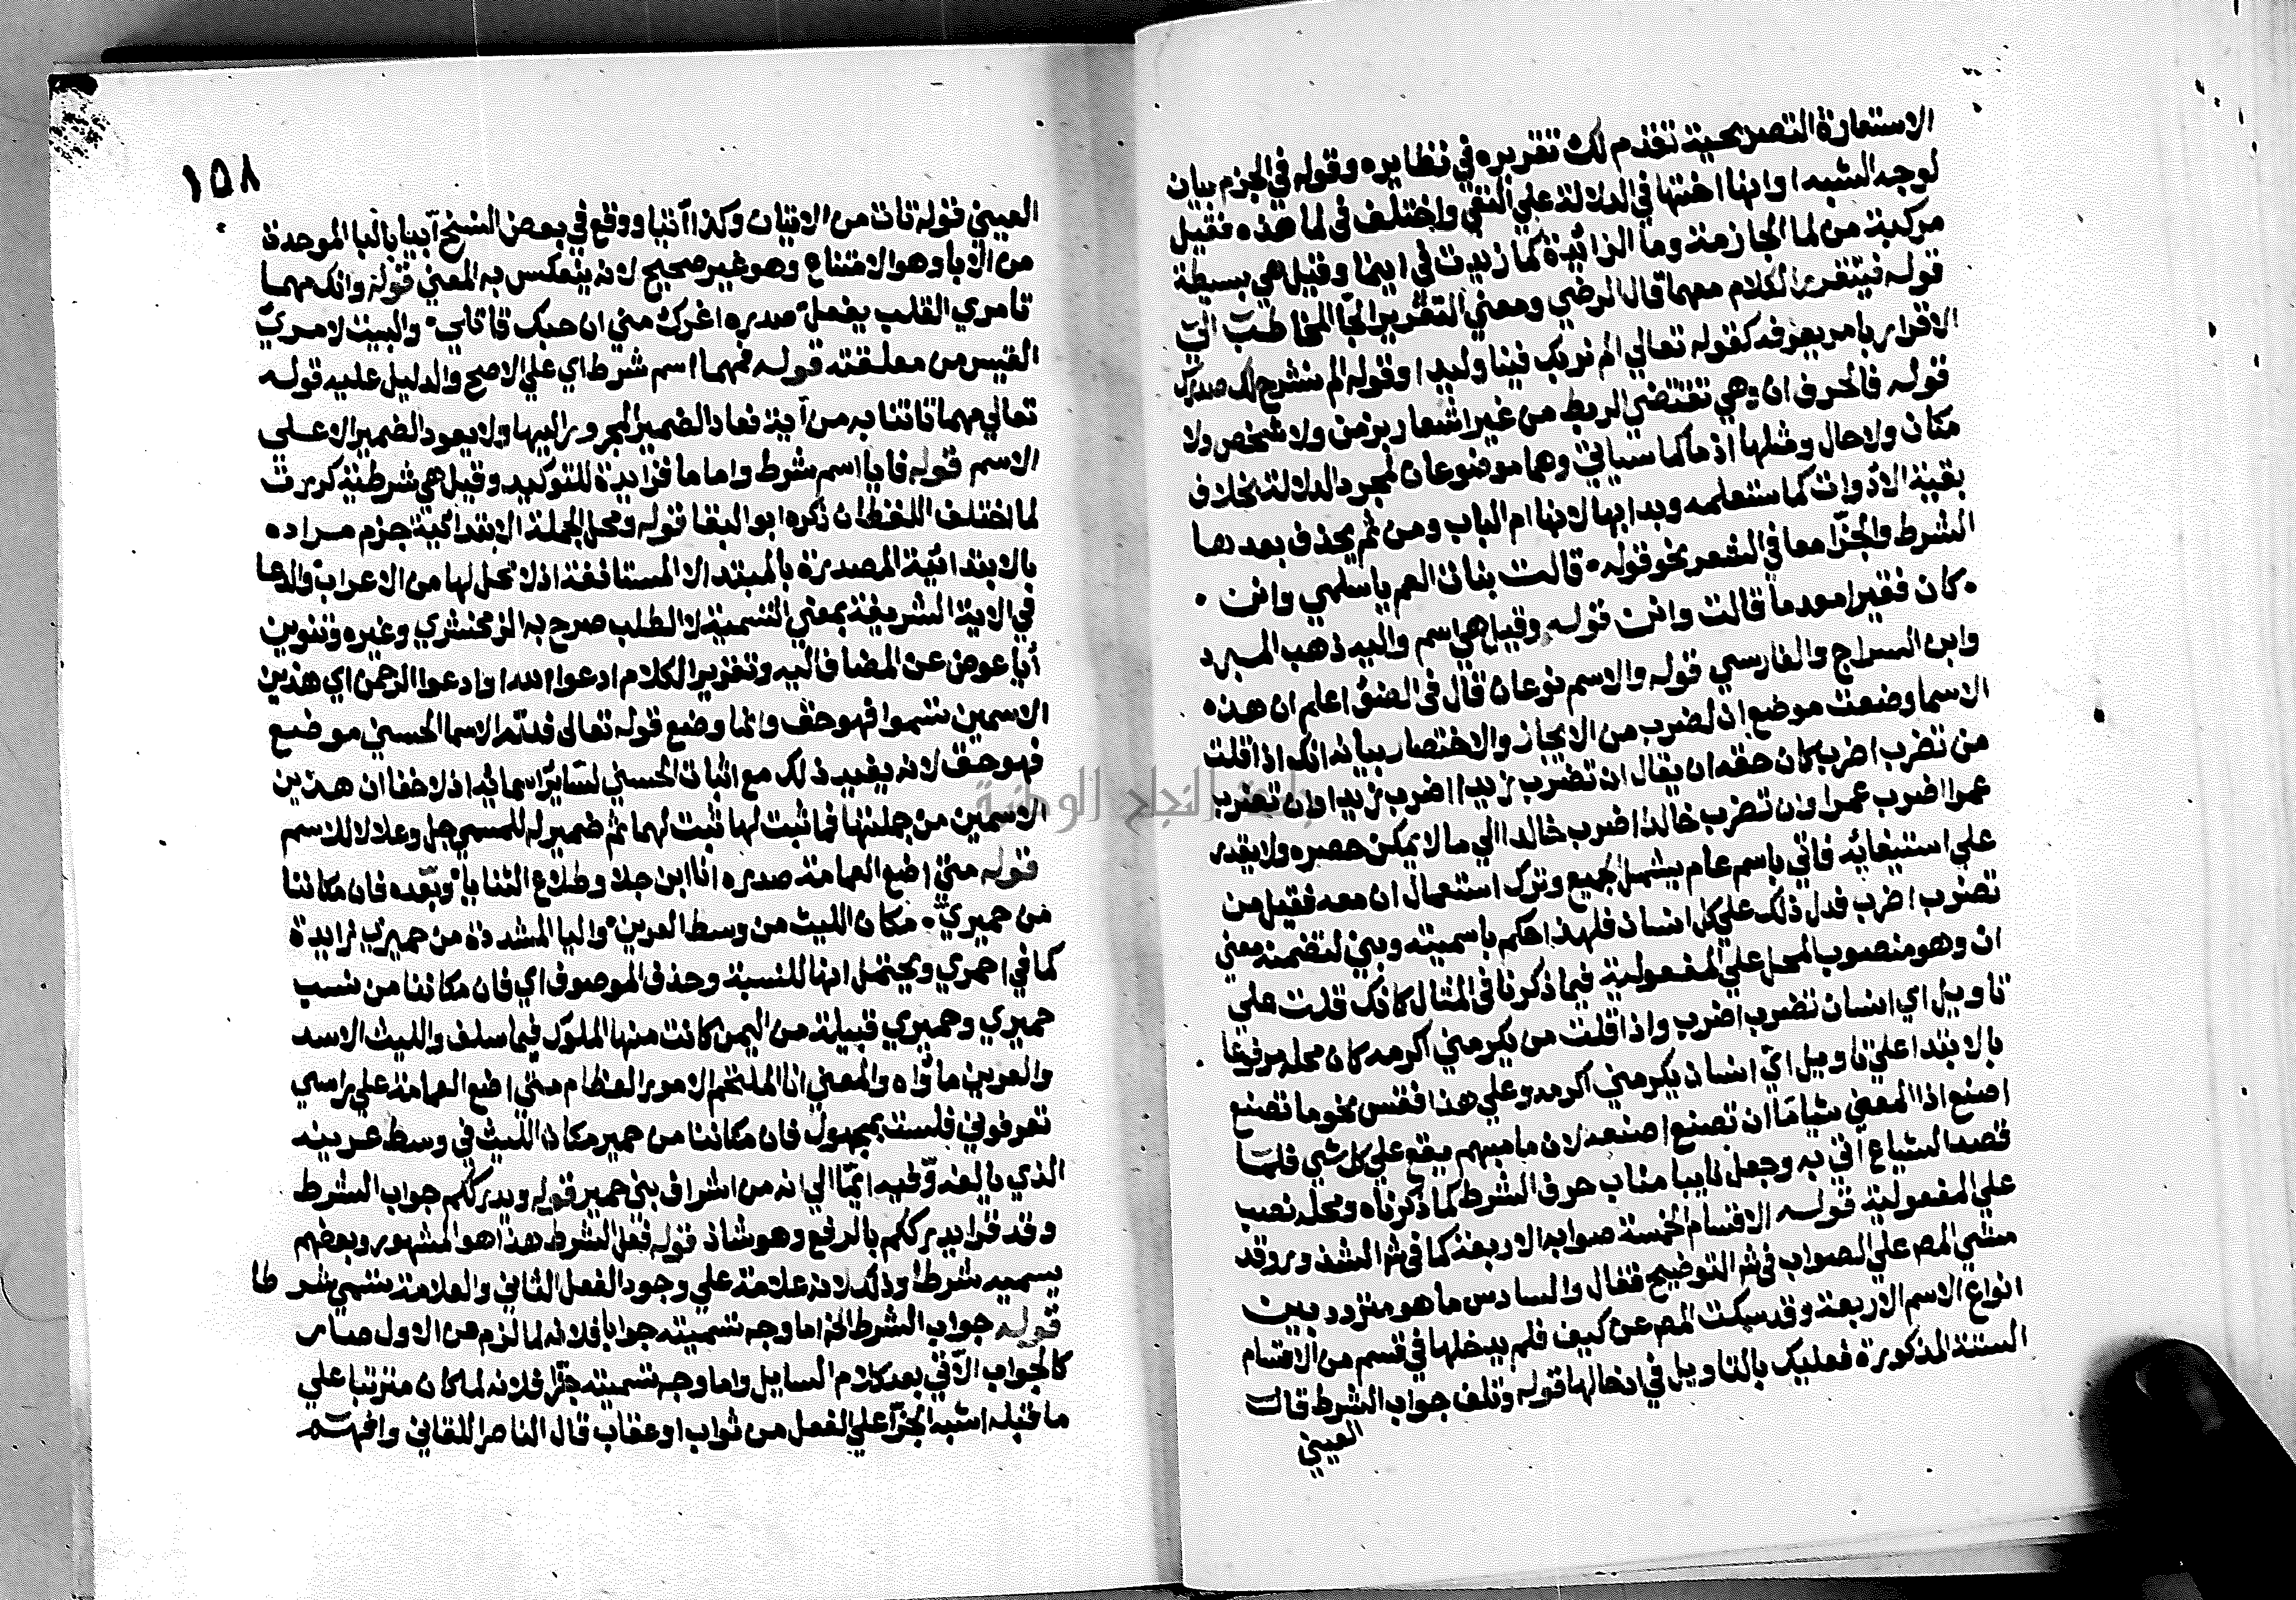 الاستعارة التصريحية تقدم لك تقريره في نظايره وقوله في الجزم بيان
لوجه الشبه اوانها اختها في الدلالة علي النفي واختلف في لما هذه فقيل
مركبة من لما الجازمة وما الزائدة كما زيدت في اينما وقيل هي بسيطة
قوله فيتقرر الكلام معهما قال الرضي ومعني التقرير الجا المخاطب الي
الاقرار بامر يعرفه كقوله تعالي الم نربك فينا وليدا وقوله الم نشرح لك صدرك
قوله فالحرف ان وهي تقتضي الربط من غير اشعار بزمن ولا شخص ولا
مكان ولا حال ومثلها اذما كما سياتي وهما موضوعان لمجرد الدلالة بخلاف
بقية الادوات كما ستعلمه وبدا بها لانها ام الباب ومن ثم يحذف بعدها
الشرط والجزا معا في الشعر نحو قوله قالت بنات العم يا سلمي وانن
كان فقيرا معدما قالت وانن قوله وقيل هي اسم واليه ذهب المبرد
وابن السراج والفارسي قوله والاسم نوعان قال في اعلم ان هذه
الاسما وضعت موضع ان لضرب من الايجاز والاختصار بيانه انك اذا قلت
من تضرب اضرب كان حقه ان يقال ان تضرب زيدا اضرب زيدا وان تضرب
عمرا اضرب عمرا وان تضرب خالدا اضرب خالدا الي ما لا يمكن حصره ولا يقدر
علي استيفائه فاتي باسم عام يشمل الجميع وترك استعمال ان معه فقيل من
تضرب اضرب فدل ذلك علي كل انسان فلهذا احكم باسميته وبني لتضمنه معني
ان وهو منصوب المحل علي المفعولية فيما ذكرنا في المثال كانك قلت علي
تاويل اي انسان تضرب اضرب واذا قلت من يكرمني اكرمه كان محله مرفوعا
بالابتدا علي تاويل اي انسان يكرمني اكرمه وعلي هذا فقس نحو ما تصنع
اصنع اذ المعني شياما ان تصنع اصنعه لان ما مبهم يقع علي كل شي فلما
قصد الشياع اتي به وجعل نايبا مناب حرف الشرط كما ذكرناه ومحله نصب
علي المفعولية قوله الاقسام الخمسة صوابه الاربعة كما في ش الشذ وروقد
مشي المص علي الصواب في ش التوضيح فقال والسادس ما هو متردد بين
انواع الاسم الاربعة وقد سكت المص عن كيف فلم يدخلها في قسم من الاقسام
الستة المذكورة فعليك بالتاويل في ادخالها قوله وتلف جواب الشرط قال
العيني
١٥٨
العيني قوله تات من الاتيان وكذا آتيا ووقع في بعض النسخ آبيا بالبا الموحدة
من الابا وهو الامتناع وهو غير صحيح لانه ينعكس به المعني قوله وانك مهما
تامري القلب يفعل صدره اغرك مني ان حبك قاتلي والبيت لامري
القيس من معلقته قوله فمهما اسم شرط اي علي الاصح والدليل عليه قوله
تعالي مهما تاتنا به من آية فعاد الضمير المجرور اليها ولا يعود الضمير الا علي
الاسم قوله فايا اسم شرط واما ما فزايدة للتوكيد وقيل هي شرطية كررت
لما اختلف اللفظان ذكره ابو البقا قوله ومحل الجملة الابتدائية جزم مراده
بالابتدائية المصدرة بالمبتدا لا المستانفة اذ لا محل لها من الاعراب والدعا
في الاية الشريفة بمعني التسمية لا الطلب صرح به الزمخشري وغيره وتنوين
أيا عوض عن المضاف اليه وتقدير الكلام ادعوا الله او ادعوا الرحمن اي هذين
الاسمين تسموا فهو حق وانما وضع قوله تعالي فله الاسما الحسني موضع
فهو حق لانه يفيد ذلك مع اثبات الحسني لساير اسمائه اذ لا خفا ان هذين
الاسمين من جملتها فما ثبت لها ثبت لهما ثم ضمير له للمسمي جل وعلا لا للاسم
قوله متي اضع العمامة صدره انا ابن جلا وطلاع الثنايا وبعده فان مكاننا
من حميري مكان الليث من وسط العرين واليا المشددة من حميري زايدة
كما في احمري ويحتمل انها للنسبة وحذف الموصوف اي فان مكاننا من نسب
حميري وحميري قبيلة من اليمن كانت منها الملوك فيما سلف والليث الاسد
والعرين ماواه والمعني انا الملتحم الامور العظام متي اضع العمامة علي راسي
تعرفوني فلست بمجهول فان مكاننا من حمير مكان الليث في وسط عرينه
الذي يالفه وفيه ايما الي انه من اشراف بني حمير قوله ويدرككم جواب الشرط
وقد قرا يدرككم بالرفع وهو شاذ قوله فعل الشرط هذا هو المشهور وبعضهم
يسميه شرطا وذلك لانه علامة علي وجود الفعل الثاني والعلامة تسمي شرطا
قوله جواب الشرط الخ اما وجه تسميته جوابا فلانه لما لزم من الاول صار
كالجواب الآتي بعد كلام السايل واما وجه تسميته جزا فلانه لما كان مترتبا علي
ما قبله اشبه الجزا علي الفعل من ثواب او عقاب قال الناصر اللقاني
جامعة النجاح الوطنية